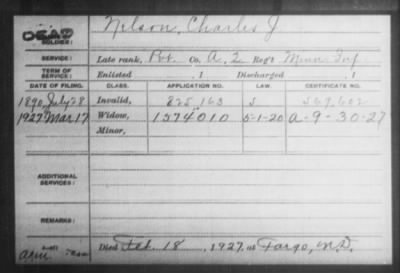 Nelson, Charles J
DEAD
SOLDIER:
SERVICE: Late rank, Pvt. Co. A, 2 Reg't Minn. Inf.
TERM OF SERVICE: Enlisted , 1 Discharged , 1
DATE OF FILING. CLASS. APPLICATION NO. LAW. CERTIFICATE NO.
1890, July 28 Invalid, 825,163 J 569,602
1927, Mar 17 Widow, 1574010 5-1-20 A-9-30-27
Minor,
ADDITIONAL SERVICES:
REMARKS:
Died Feb. 18, 1927, at Fargo, N.D.